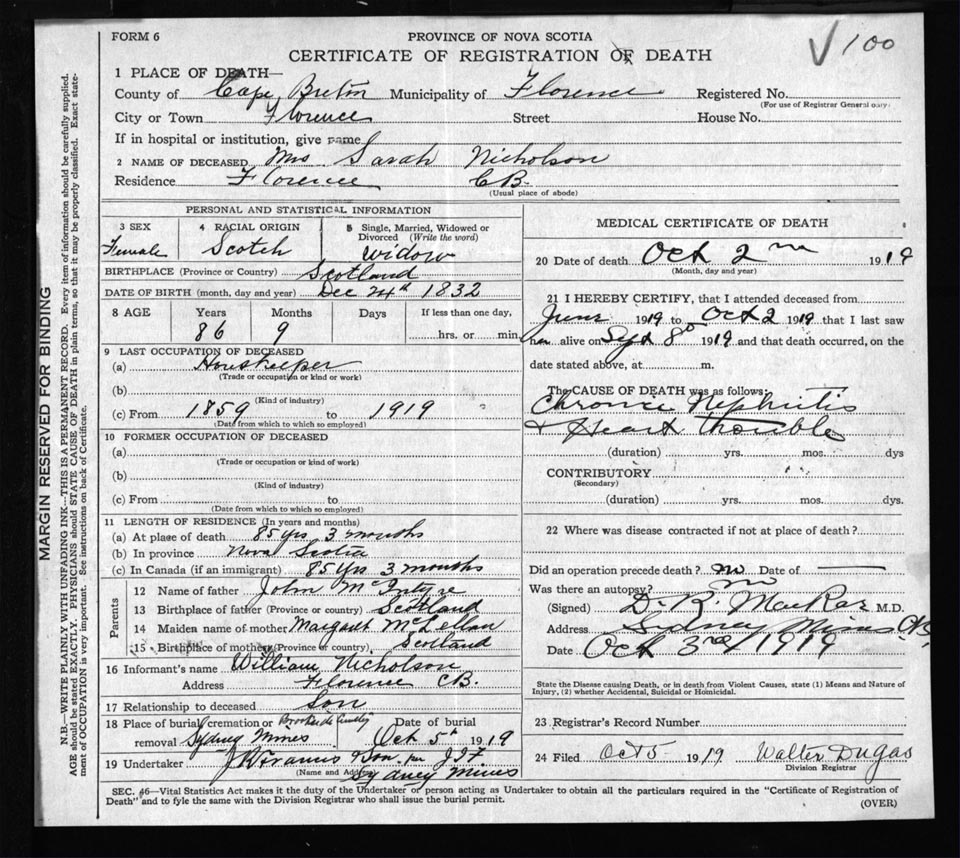 FORM 6
PROVINCE OF NOVA SCOTIA
CERTIFICATE OF REGISTRATION OF DEATH
√100
1 PLACE OF DEATH—
County of Cape Breton Municipality of Florence Registered No.
(For use of Registrar General only)
City or Town Florence Street House No.
If in hospital or institution, give name
2 NAME OF DECEASED Mrs Sarah Nicholson
Residence Florence CB.
(Usual place of abode)
PERSONAL AND STATISTICAL INFORMATION
3 SEX Female
4 RACIAL ORIGIN Scotch
5 Single, Married, Widowed or Divorced (Write the word) Widow
BIRTHPLACE (Province or Country) Scotland
DATE OF BIRTH (month, day and year) Dec 24th 1832
8 AGE Years Months Days If less than one day,
86 9 hrs. or min.
9 LAST OCCUPATION OF DECEASED
(a) Houskeeper
(Trade or occupation or kind or work)
(b)
(Kind of industry)
(c) From 1859 to 1919
(Date from which to which so employed)
10 FORMER OCCUPATION OF DECEASED
(a)
(Trade or occupation or kind of work)
(b)
(Kind of industry)
(c) From to
(Date from which to which so employed)
11 LENGTH OF RESIDENCE (In years and months)
(a) At place of death 85 yrs 3 months
(b) In province Nova Scotia
(c) In Canada (if an immigrant) 85 yrs 3 months
Parents
12 Name of father John McIntyre
13 Birthplace of father (Province or country) Scotland
14 Maiden name of mother Margaret McLellan
15 Birthplace of mother (Province or country) Scotland
16 Informant's name William Nicholson
Address Florence CB.
17 Relationship to deceased Son
18 Place of burial, cremation or removal Sydney Mines
Date of burial Oct 5th 1919
19 Undertaker J R Francis & Son. per J I F
(Name and Address) Sydney Mines
MEDICAL CERTIFICATE OF DEATH
20 Date of death Oct 2nd 1919
(Month, day and year)
21 I HEREBY CERTIFY, that I attended deceased from
June 1919 to Oct 2 1919 that I last saw
her alive on Sept 8th 1919 and that death occurred, on the
date stated above, at m.
The CAUSE OF DEATH was as follows:
Chronic Nephritis
& Heart Trouble
(duration) yrs. mos. dys
CONTRIBUTORY
(Secondary)
(duration) yrs. mos. dys.
22 Where was disease contracted if not at place of death?
Did an operation precede death? no Date of —
Was there an autopsy? no
(Signed) D. R. M.D.
Address Sydney Mines CB
Date Oct 3rd/1919
State the Disease causing Death, or in death from Violent Causes, state (1) Means and Nature of
Injury, (2) whether Accidental, Suicidal or Homicidal.
23 Registrar's Record Number
24 Filed Oct 5 1919 Walter Dugas
Division Registrar
SEC. 46—Vital Statistics Act makes it the duty of the Undertaker or person acting as Undertaker to obtain all the particulars required in the "Certificate of Registration of
Death" and to fyle the same with the Division Registrar who shall issue the burial permit.
(OVER)
MARGIN RESERVED FOR BINDING
N.B.—WRITE PLAINLY WITH UNFADING INK—THIS IS A PERMANENT RECORD. Every item of information should be carefully supplied.
AGE should be stated EXACTLY. PHYSICIANS should STATE CAUSE OF DEATH in plain terms, so that it may be properly classified. Exact state-
ment of OCCUPATION is very important. See instructions on back of Certificate.